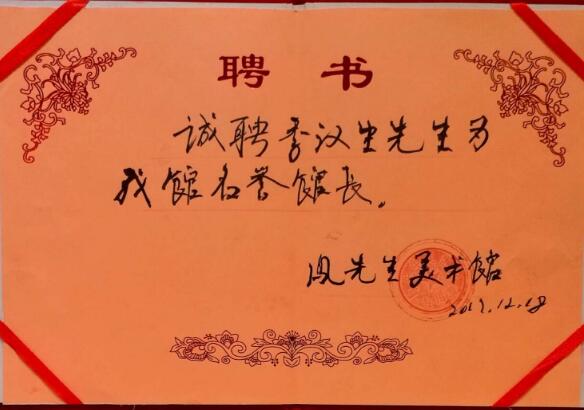 聘书
诚聘季汉生先生为
我馆名誉馆长。
先生美术馆